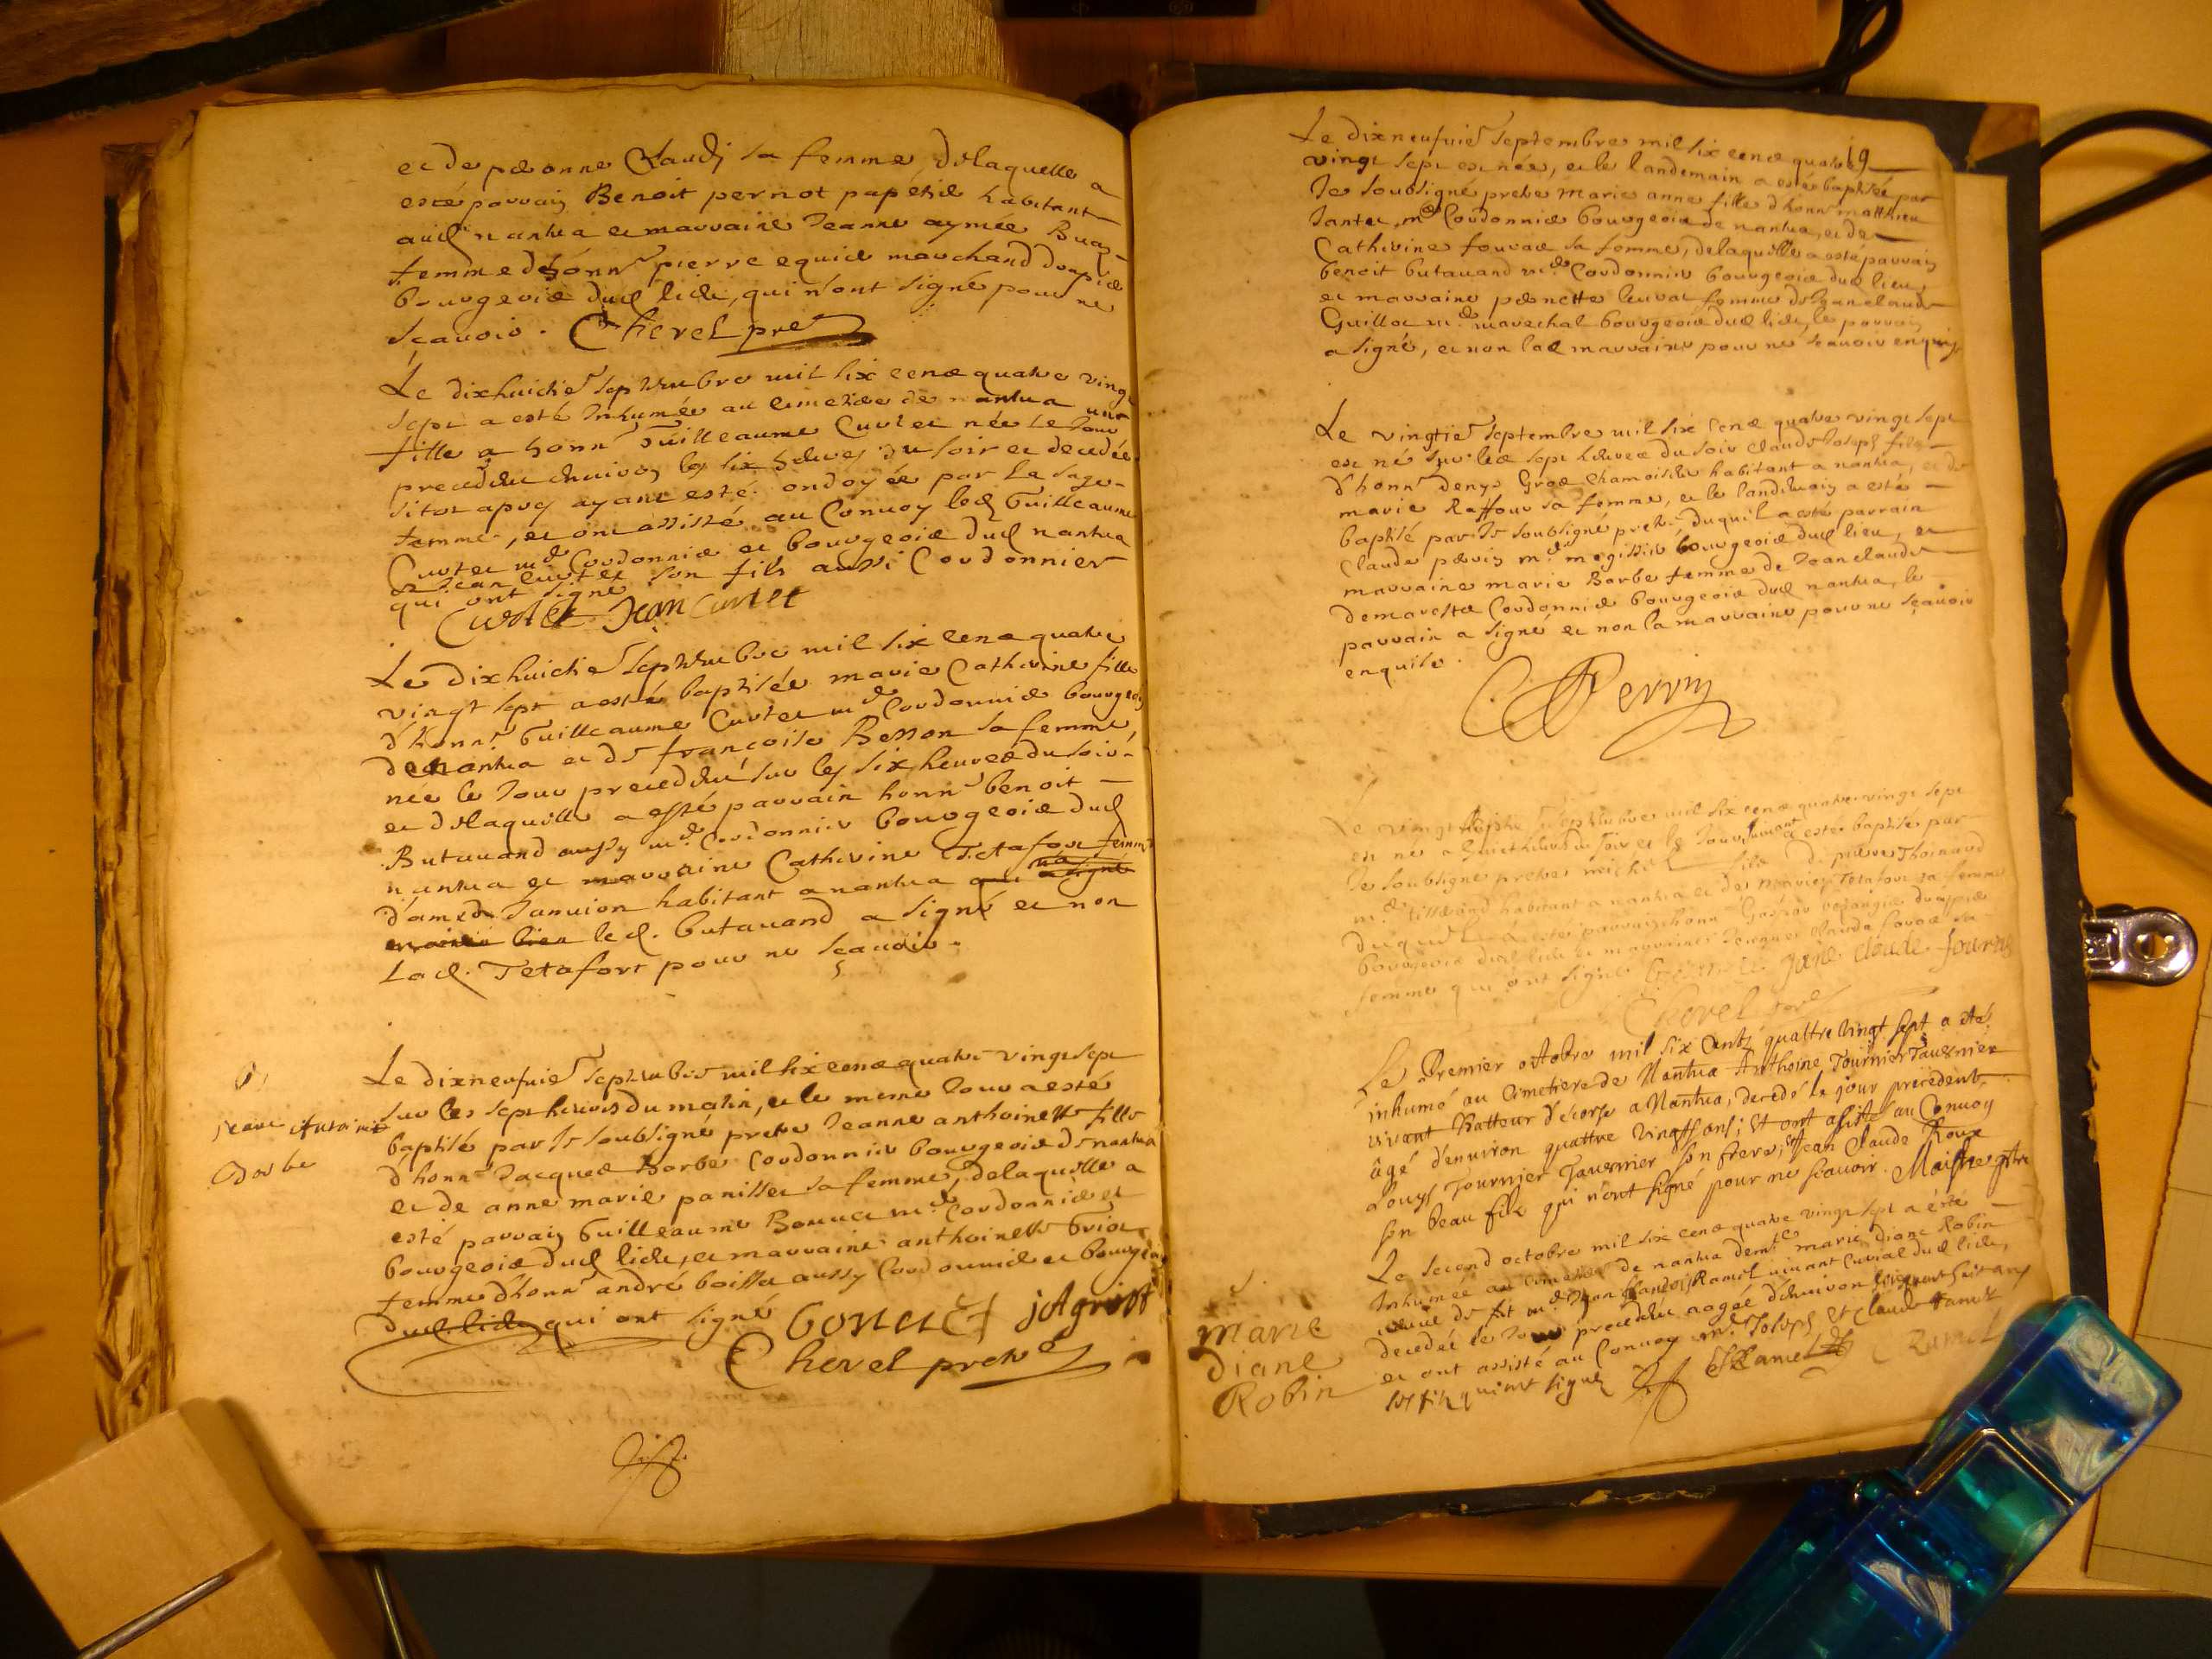 et de peronne Claudj sa femme, delaquelle a
esté parrain Benoit pernot papetié habitant
aud nantua et marraine Jeanne aymée
femme d'honn pierre marchand drapié
bourgeois dud lieu, qui n'ont signé pour ne
scavoir. Chevel pre
Le dixhuictie septembre mil six cens quatre vingt
sept a esté Inhumée au cimetiere de nantua une
fille a honn Guilleaume Curtet née le Jour
precedent environ les six heures du soir et decedée
sitot apres ayant esté ondoyée par la sage
femme, et ont assisté au Convoy led Guilleaume
Curtet md Cordonnié et bourgeois dud nantua
et Jean Curtet son fils aussi Cordonnier
qui ont signé
Curtet Jean Curtet
Le dixhuictie septembre mil six cens quatre
vingt sept a esté baptisée marie Catherine fille
d'honn Guilleaume Curtet md Cordonnié bourgeois
de nantua et de francoise Besson sa femme
née le Jour precedent sur les six heures du soir
et delaquelle a esté parrain honn benoit
Butavand aussy md Cordonnier bourgeois dud
nantua et marraine Catherine Tetafort femme
d'amed Janvion habitant a nantua
led. butavand a signé et non
lad. Tetafort pour ne scavoir.
Jeane Antoine
Borbe
Le dixneufvie septembre mil six cens quatre vingt sept
sur les sept heures du matin, et le meme Jour a esté
baptisé par Je soubsigné pretre Jeanne anthoinette fille
d'honn Jacques Borbe Cordonnier bourgeois de nantua
et de anne marie panisset sa femme, delaquelle a
esté parrain Guilleaume Bonnet md Cordonnié et
bourgeois dud lieu, et marraine anthoinette
femme d'honn andré aussy Cordonnié et bourgeois
dud. lieu qui ont signé bonnet
Chevel pretre
19
Le dixneufvie septembre mil six cens quatre
vingt sept est née, et le landemain a esté baptisée par
Je soubsigné pretre marie anne fille d'honn matthieu
Jantet, md Cordonnié bourgeois de nantua, et de
Catherine sa femme, delaquelle a esté parrain
benoit butavand md Cordonnier bourgeois dud lieu,
et marraine pernette femme de Jean claude
Guillot md marechal bourgeois dud lieu, le parrain
a signé, et non lad marraine pour ne scavoir enquise
Le vingtie septembre mil six cens quatre vingt sept
est né sur les sept heures du soir claude Joseph fils
d'honn denys Gros Chamoisier habitant a nantua, et de
marie Raffour sa femme, et le landemain a esté
baptisé par Je soubsigné pretre duquel a esté parrain
Claude perrin md megissier bourgeois dud lieu, et
marraine marie Borbe femme de Jean claude
demareste Cordonnié bourgeois dud nantua, le
parrain a signé et non la marraine pour ne scavoir
enquise.
C Perrin
Le vingt septembre mil six cens quatre vingt sept
est né a huict heures du soir et le Jour suivant a esté baptisé par
Je soubsigné pretre michel fils de pierre Thoinard
md tisserand habitant a nantua et de marie Tetafort sa femme
duquel a esté parrain honn drapié
bourgeois dud lieu et marraine
femme qui ont signé
Chevel pre
Le Premier octobre mil six cents quattre vingt sept a eté
inhumé au Cimetiere de Nantua Anthoine Tournier Tavernier
vivant Batteur d'écorse a Nantua, decedé le jour precedent
âgé d'environ quattre vingts ans; Et ont assité au Convoy
Louys Tournier Tavernier son frere, et Jean Claude Roux
son beau fils qui n'ont signé pour ne scavoir.
marie
diane
Robin
Le second octobre mil six cens quatre vingt sept a esté
Inhumée au cimetiere de nantua marie diane Robin
veuve de fut md Jean Ramel vivant Curial dud lieu,
decedée le Jour precedent aagée d'environ soixante huit ans
et ont assisté au Convoy mrs Joseph et Claude Ramel
ses fils qui ont signé Ramel Ramel